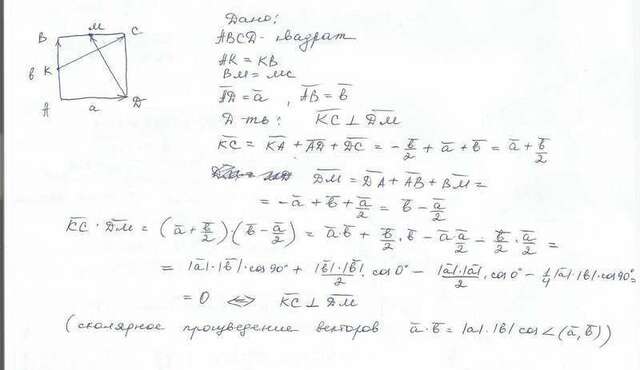 Дано:
ABCD - квадрат
AK = KB
BM = MC
A̅D̅ = a̅, A̅B̅ = b̅
Д-ть: K̅C̅ ⊥ D̅M̅
B M C
b K
A a D
K̅C̅ = K̅A̅ + A̅D̅ + D̅C̅ = -b̅/2 + a̅ + b̅ = a̅ + b̅/2
D̅M̅ = D̅A̅ + A̅B̅ + B̅M̅ =
= -a̅ + b̅ + a̅/2 = b̅ - a̅/2
K̅C̅ · D̅M̅ = (a̅ + b̅/2) · (b̅ - a̅/2) = a̅·b̅ + b̅/2·b̅ - a̅·a̅/2 - b̅/2·a̅/2 =
= |a̅|·|b̅|·cos90° + |b̅|·|b̅|/2·cos0° - |a̅|·|a̅|/2·cos0° - 1/4|a̅|·|b̅|·cos90° =
= 0 ⇔ K̅C̅ ⊥ D̅M̅
(скалярное произведение векторов a̅·b̅ = |a̅|·|b̅| cos∠(a̅,b̅))